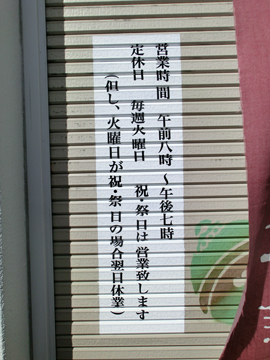 営業時間　午前八時〜午後七時
定休日　毎週火曜日
祝・祭日は営業致します
(但し、火曜日が祝・祭日の場合翌日休業)